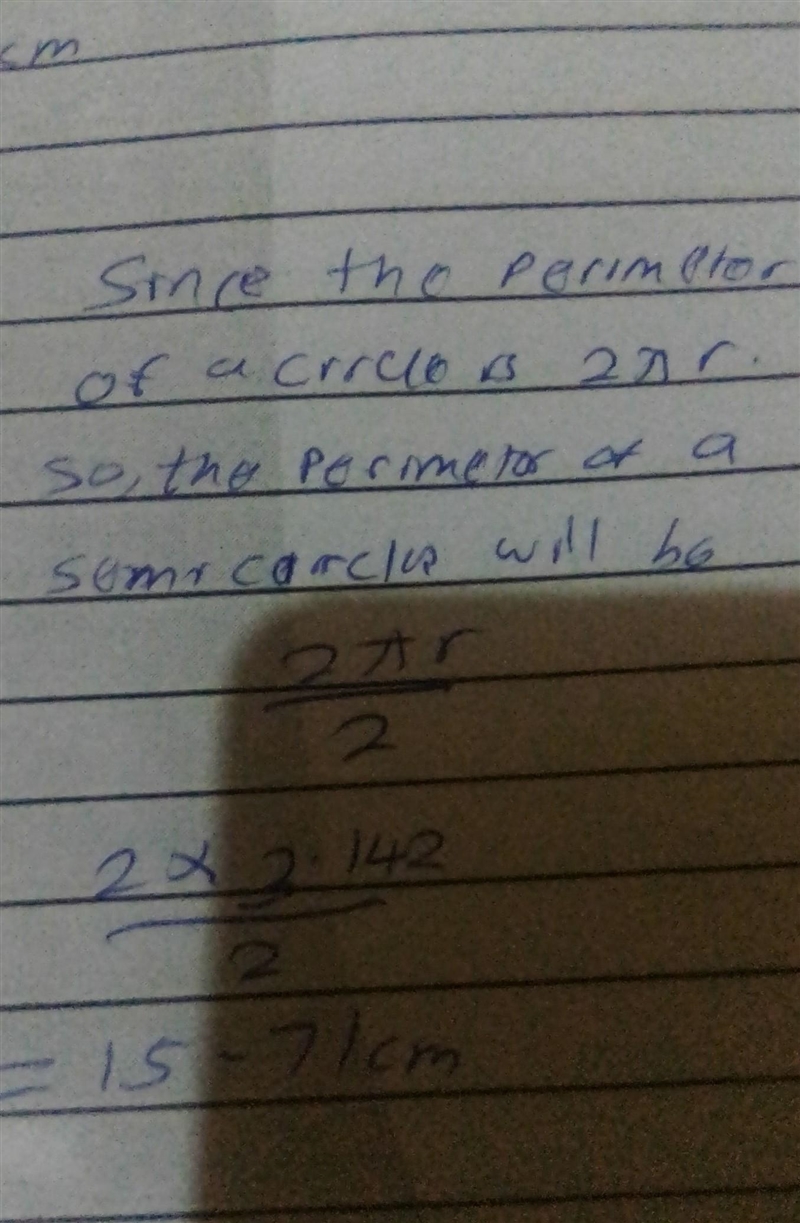 cm
Since the perimeter
of a circle is 2πr.
So, the perimeter of a
semi circle will be
2πr
2
2 x 3.142
2
= 15.71cm